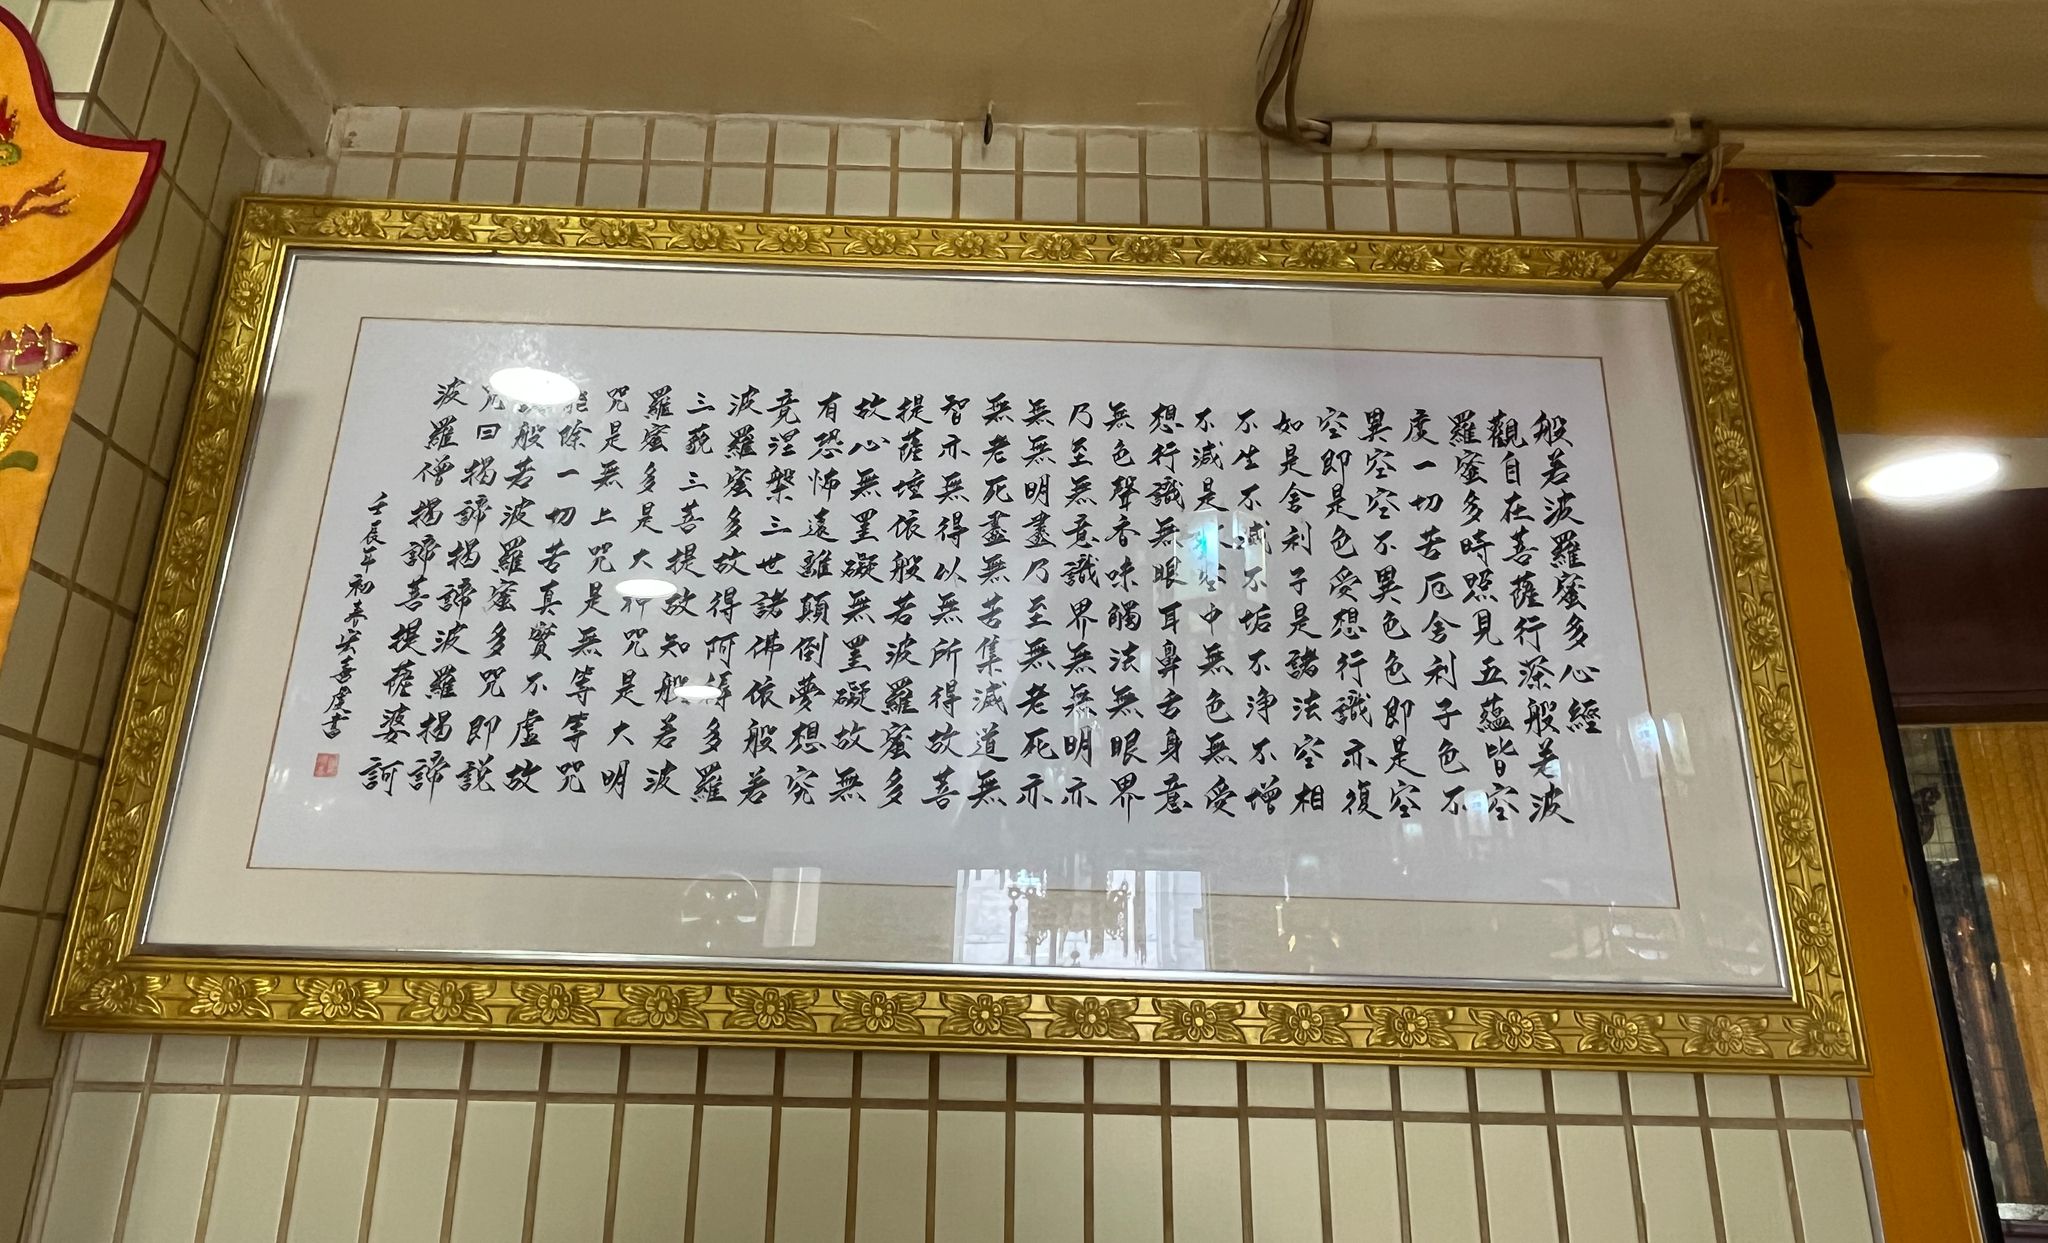 般若波羅蜜多心經
觀自在菩薩行深般若波
羅蜜多時照見五蘊皆空
度一切苦厄舍利子色不
異空空不異色色即是空
空即是色受想行識亦復
如是舍利子是諸法空相
不生不滅不垢不淨不增
不減是故空中無色無受
想行識無眼耳鼻舌身意
無色聲香味觸法無眼界
乃至無意識界無無明亦
無無明盡乃至無老死亦
無老死盡無苦集滅道無
智亦無得以無所得故菩
提薩埵依般若波羅蜜多
故心無罣礙無罣礙故無
有恐怖遠離顛倒夢想究
竟涅槃三世諸佛依般若
波羅蜜多故得阿耨多羅
三藐三菩提故知般若波
羅蜜多是大神咒是大明
咒是無上咒是無等等咒
能除一切苦真實不虛故
說般若波羅蜜多咒即說
咒曰揭諦揭諦波羅揭諦
波羅僧揭諦菩提薩婆訶
壬辰年初春安喜虔書